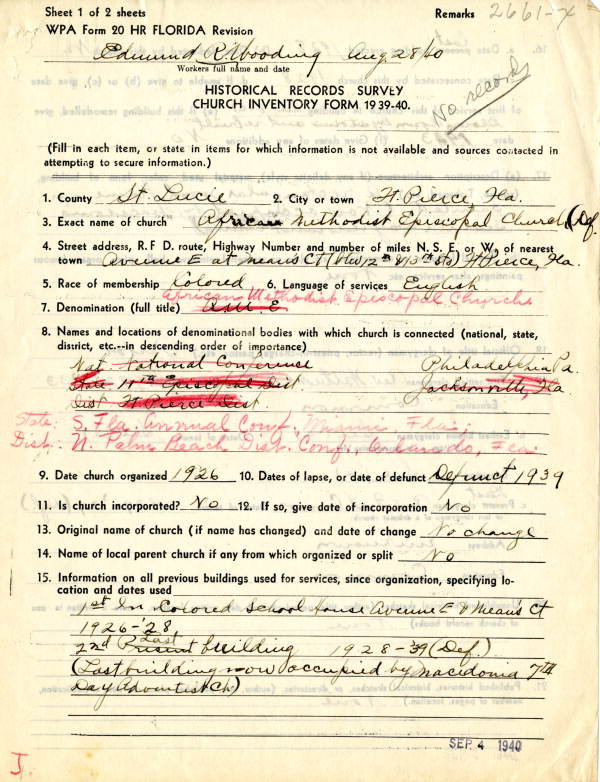 Sheet 1 of 2 sheets
Remarks 2661-X
WPA Form 20 HR FLORIDA Revision
Edmund R. Wooding Aug 28/40
Workers full name and date
HISTORICAL RECORDS SURVEY
CHURCH INVENTORY FORM 1939-40.
No records
(Fill in each item, or state in items for which information is not available and sources contacted in
attempting to secure information.)
1. County St. Lucie 2. City or town Ft. Pierce, Fla.
3. Exact name of church African Methodist Episcopal Church (Def.
4. Street address, R.F D. route, Highway Number and number of miles N. S. E. or W. of nearest
town Avenue E at means Ct (btw 12th & 13th sts) Ft Pierce, Fla
5. Race of membership Colored 6. Language of services English
African Methodist Episcopal Church
7. Denomination (full title) A M E
8. Names and locations of denominational bodies with which church is connected (national, state,
district, etc.--in descending order of importance)
Nat National Conference Philadelphia Pa.
State 11th Episcopal Dist Jacksonville, Fla
Dist Ft Pierce Dist
State: S. Fla. Annual Conf., Miami, Fla.
Dist: N. Palm Beach Dist. Conf., Orlando, Fla.
9. Date church organized 1926 10. Dates of lapse, or date of defunct Defunct 1939
11. Is church incorporated? No 12. If so, give date of incorporation No
13. Original name of church (if name has changed) and date of change No change
14. Name of local parent church if any from which organized or split No
15. Information on all previous buildings used for services, since organization, specifying lo-
cation and dates used
1st In Colored School House Avenue E & Mean's Ct
1926-'28
Last
2nd Present building 1928-'39 (Def.)
(Last building now occupied by Macedonia 7th
Day Adventist Ch)
SEP 4 1940
J.